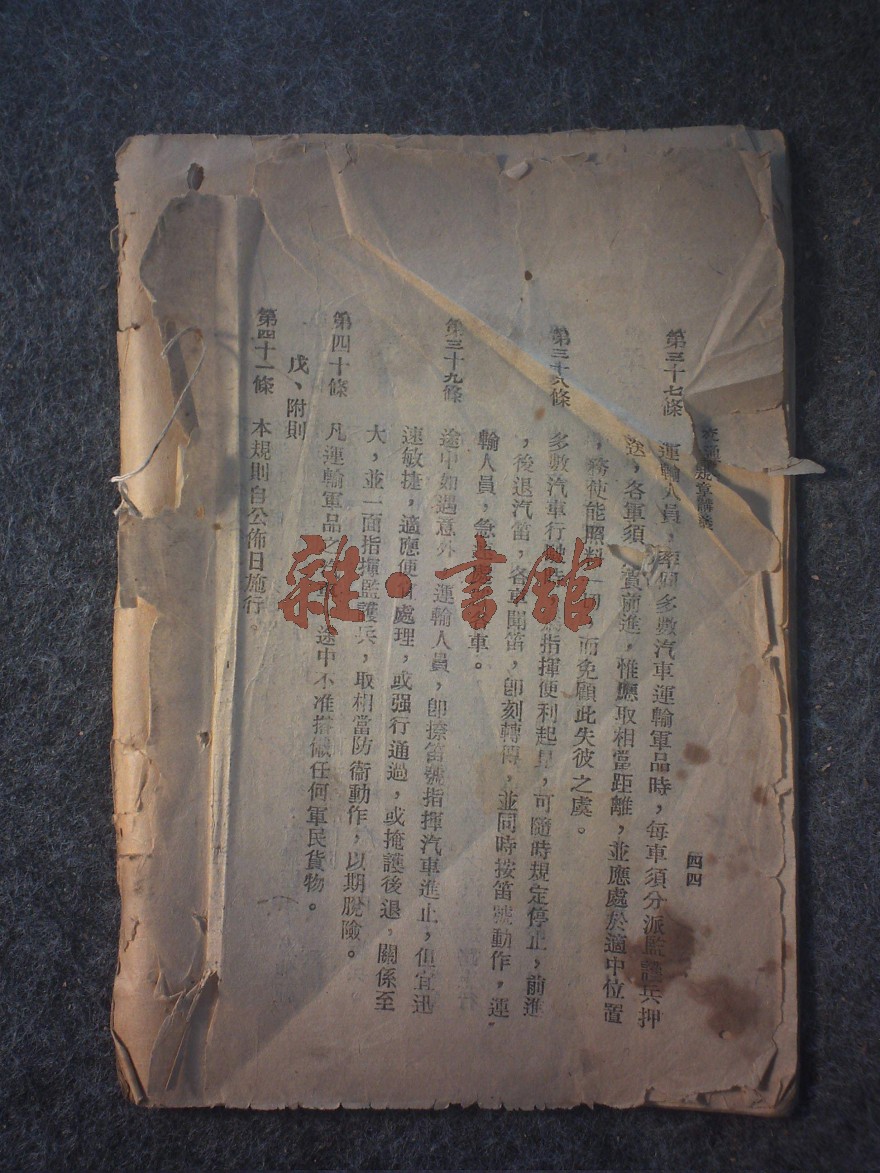 規章 四四
第三十七條 運輸人員,率領多數汽車運輸軍品時,每車須分派監護兵押
送,各軍須 前進,惟應取相當距離,並應處於適中位置
,務使能照料一切 而免顧此失彼之處。
第三十八條 多數汽車行動 指揮便利起見,可隨時規定停止,前進
,後退汽笛,各車聞笛,卽刻轉傳,並同時按笛號動作,運
輸人員,急 車。
第三十九條 途中如遇意外,運輸人員,卽按笛號指揮汽車進止,但宜迅
速敏捷,適應便宜處理,或强行通過,或掩護後退,關係至
大,並一面指揮監護兵,取相當防衞動作,以期脫險。
第四十條 凡運輸軍品之 途中不准搭儎任何軍民貨物。
戊、附則
第四十一條 本規則自公佈日施行。
雜·書館